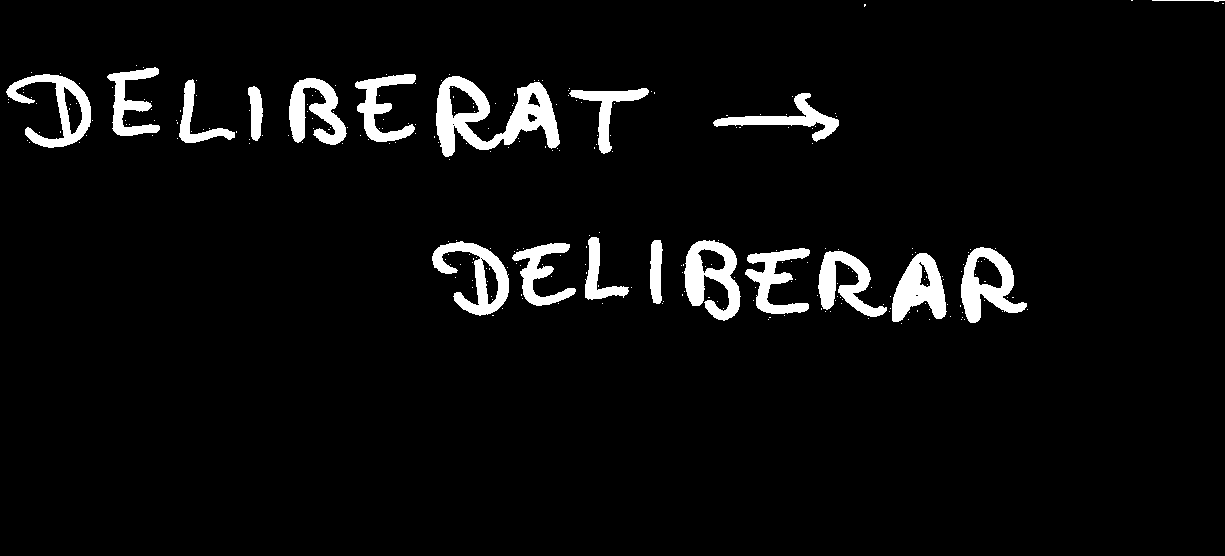 DELIBERAT →
DELIBERAR